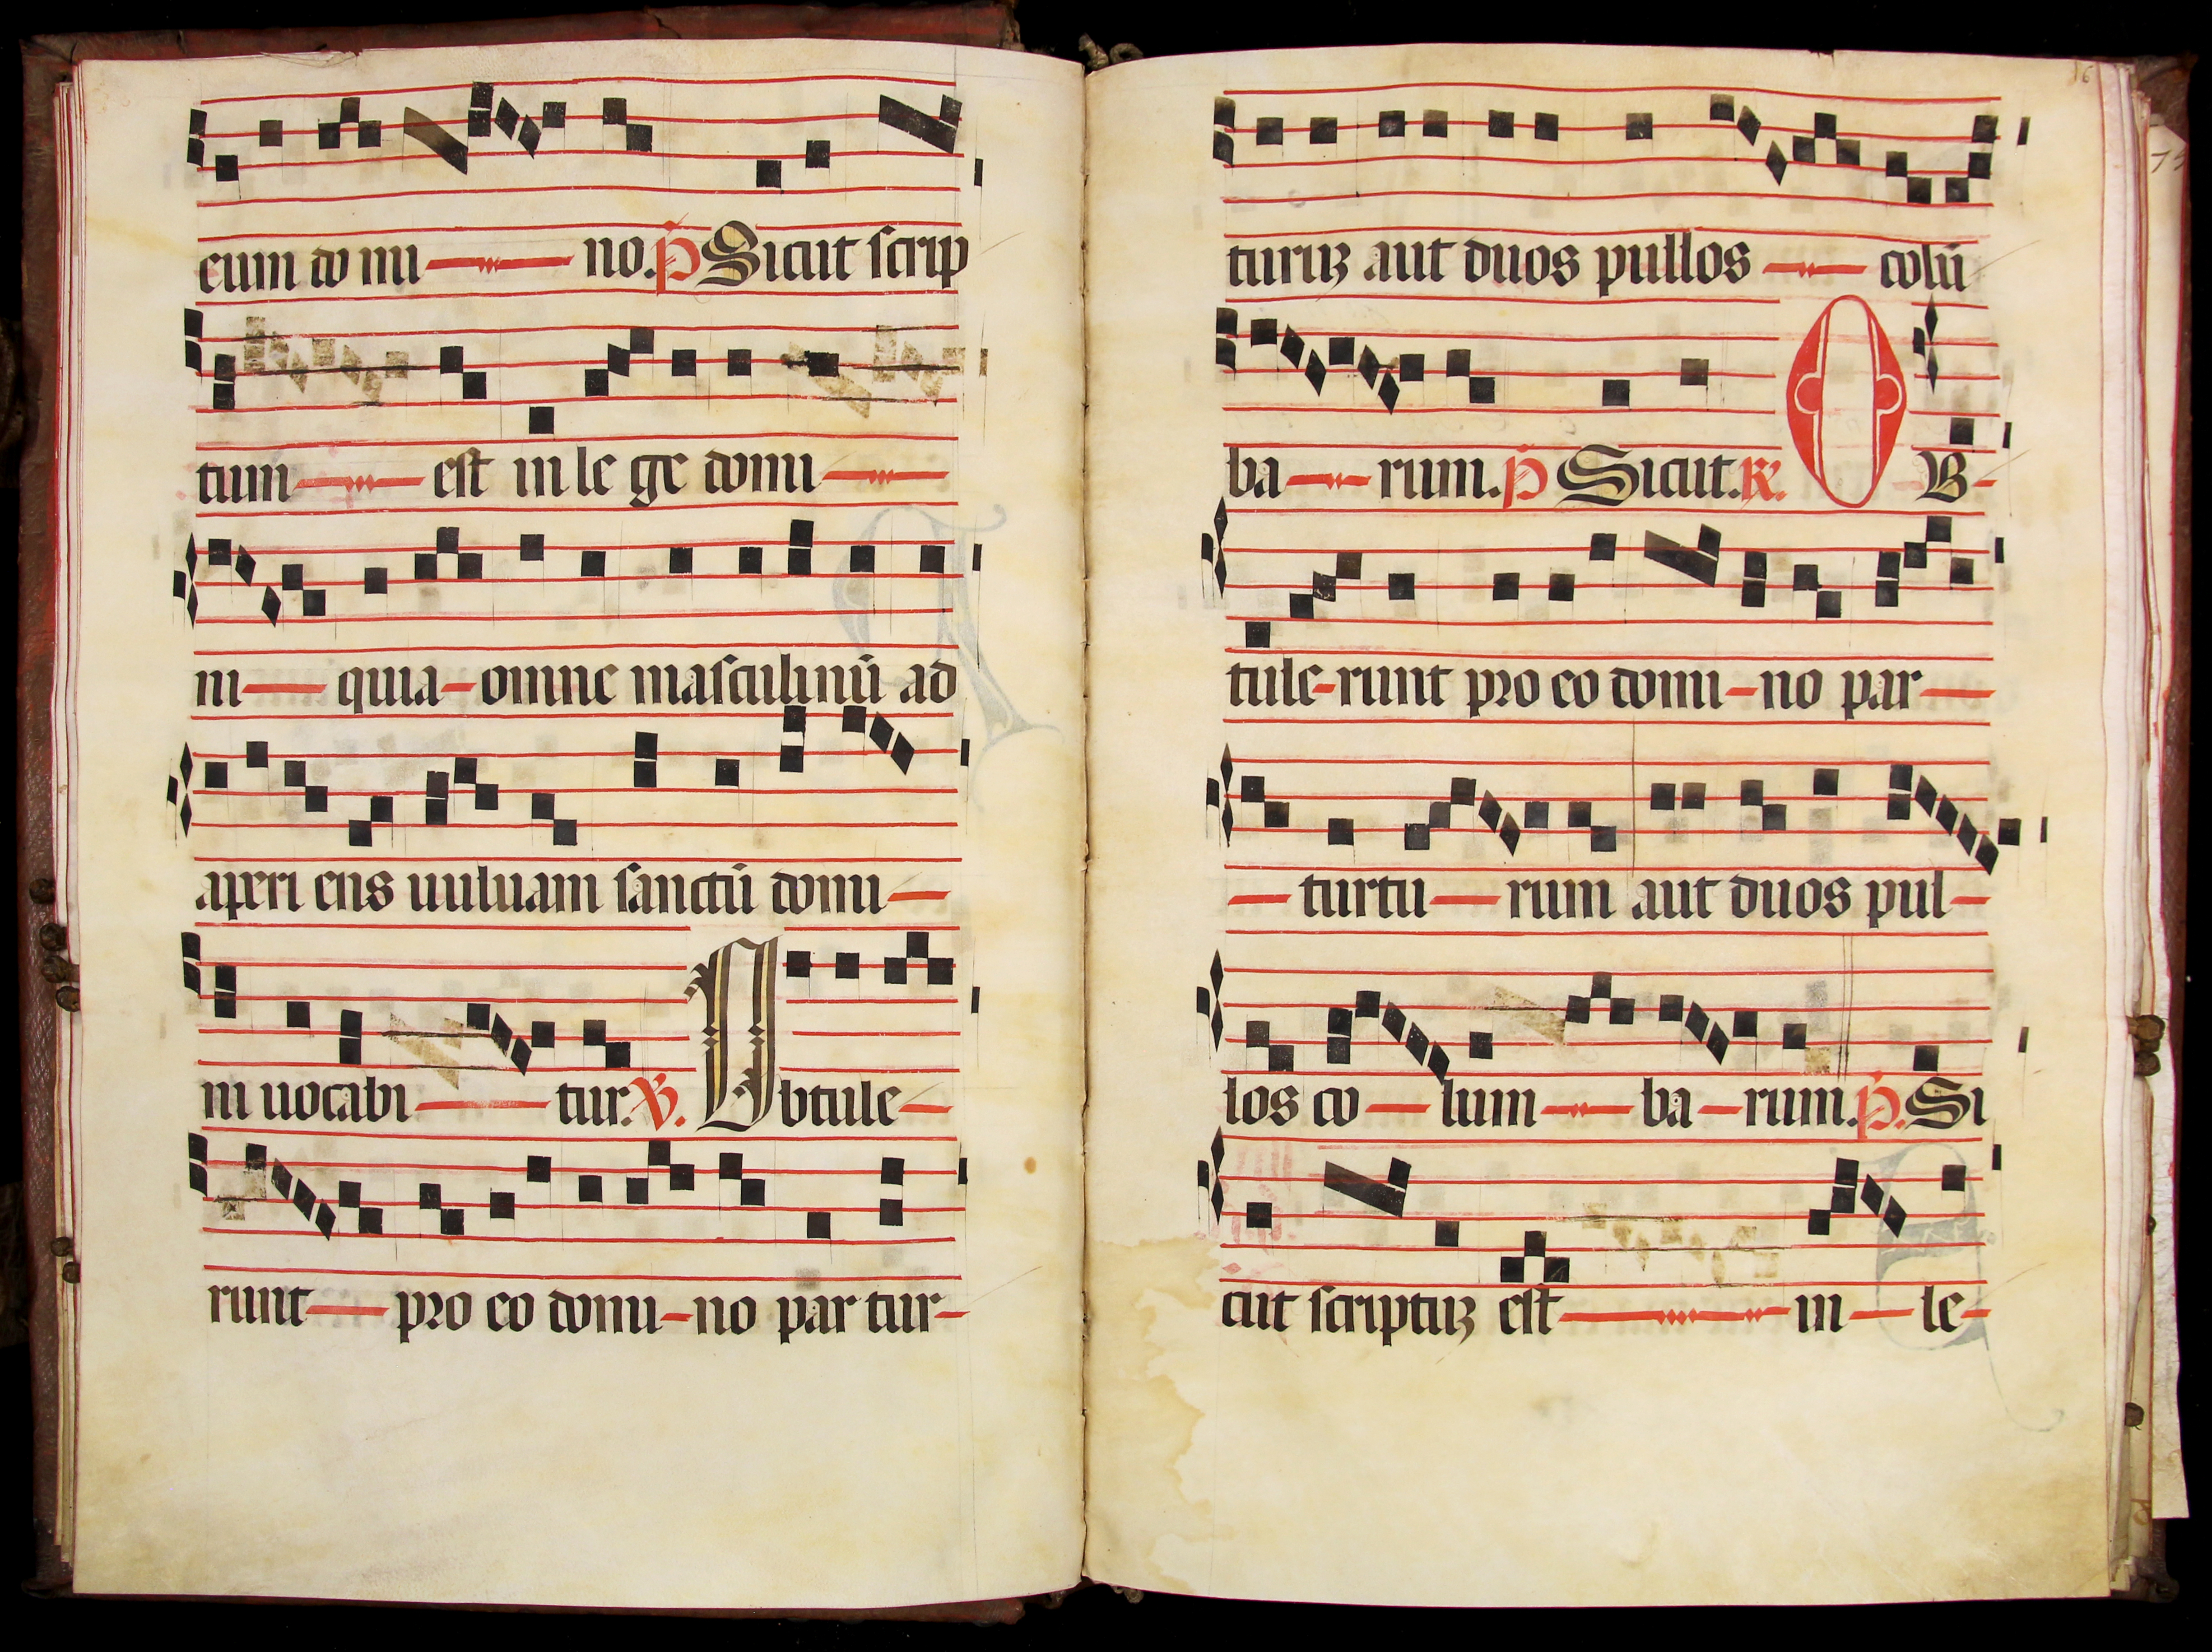 eum do mi no. P Sicut scrip
tum est in le ge domi
ni quia omne masculinū ad
aperi ens uuluam sanctū domi
ni uocabi tur. V. Obtule
runt pro eo domi no par tur
16
turuꝫ aut duos pullos colū
ba rum. P Sicut. R. O B
tule runt pro eo domi no par
turtu rum aut duos pul
los co lum ba rum. P. Si
cut scriptuꝫ est in le